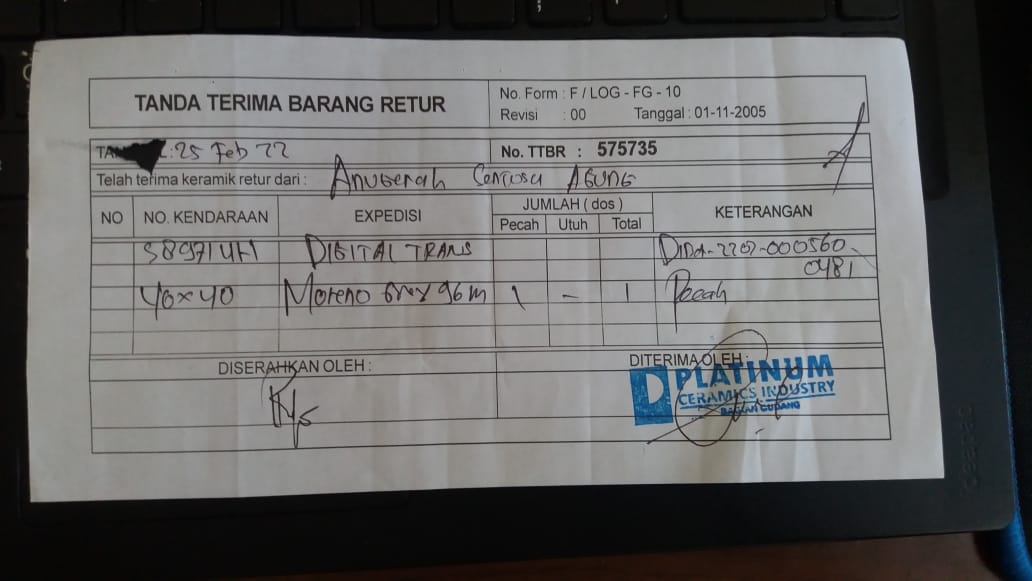 TANDA TERIMA BARANG RETUR
No. Form : F / LOG - FG - 10
Revisi : 00 Tanggal : 01-11-2005
25 Feb 22
No. TTBR : 575735
Telah terima keramik retur dari : Anugerah Sentosa AGUNG
NO NO. KENDARAAN EXPEDISI JUMLAH ( dos ) KETERANGAN
Pecah Utuh Total
S8971UH DIGITAL TRANS
0481
40x40 Moreno Grey 96m 1 - 1 Pecah
DISERAHKAN OLEH :
DITERIMA OLEH :
PLATINUM
CERAMICS INDUSTRY
BAGIAN GUDANG